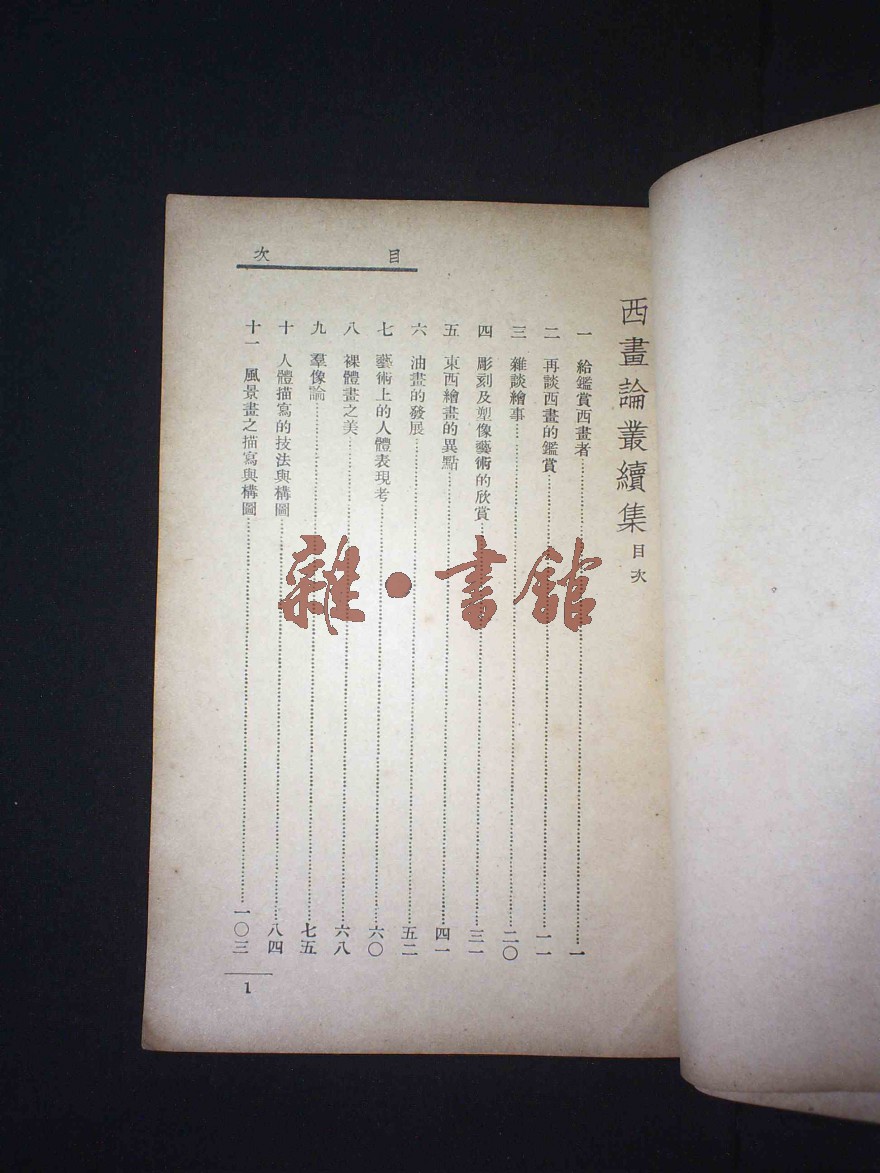 目次
西畫論叢續集 目次
一 給鑑賞西畫者 一
二 再談西畫的鑑賞 一一
三 雜談繪事 二〇
四 彫刻及塑像藝術的欣賞 三一
五 東西繪畫的異點 四一
六 油畫的發展 五二
七 藝術上的人體表現考 六〇
八 裸體畫之美 六八
九 羣像論 七五
十 人體描寫的技法與構圖 八四
十一 風景畫之描寫與構圖 一〇三
1
雜·書館